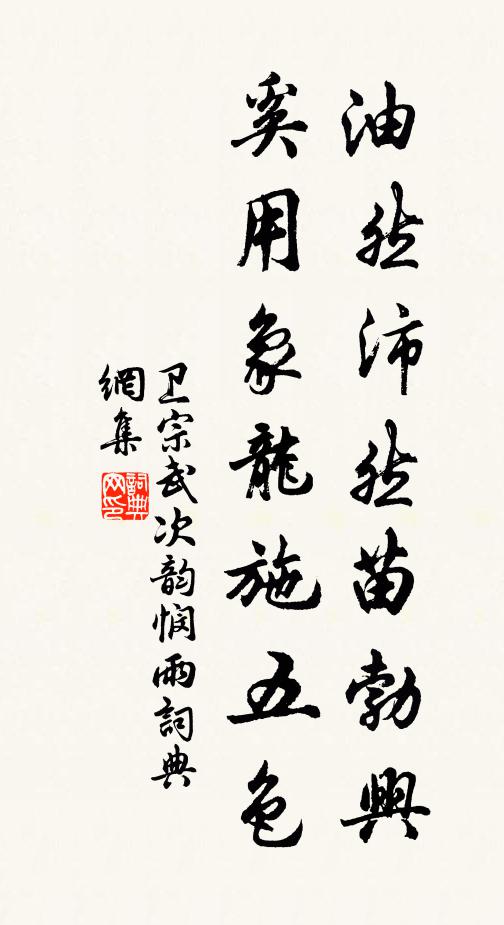 油然沛然苗勃興
奚用象龍施五色
卫宗武次韵悯雨詞典
網集
詞典
网印